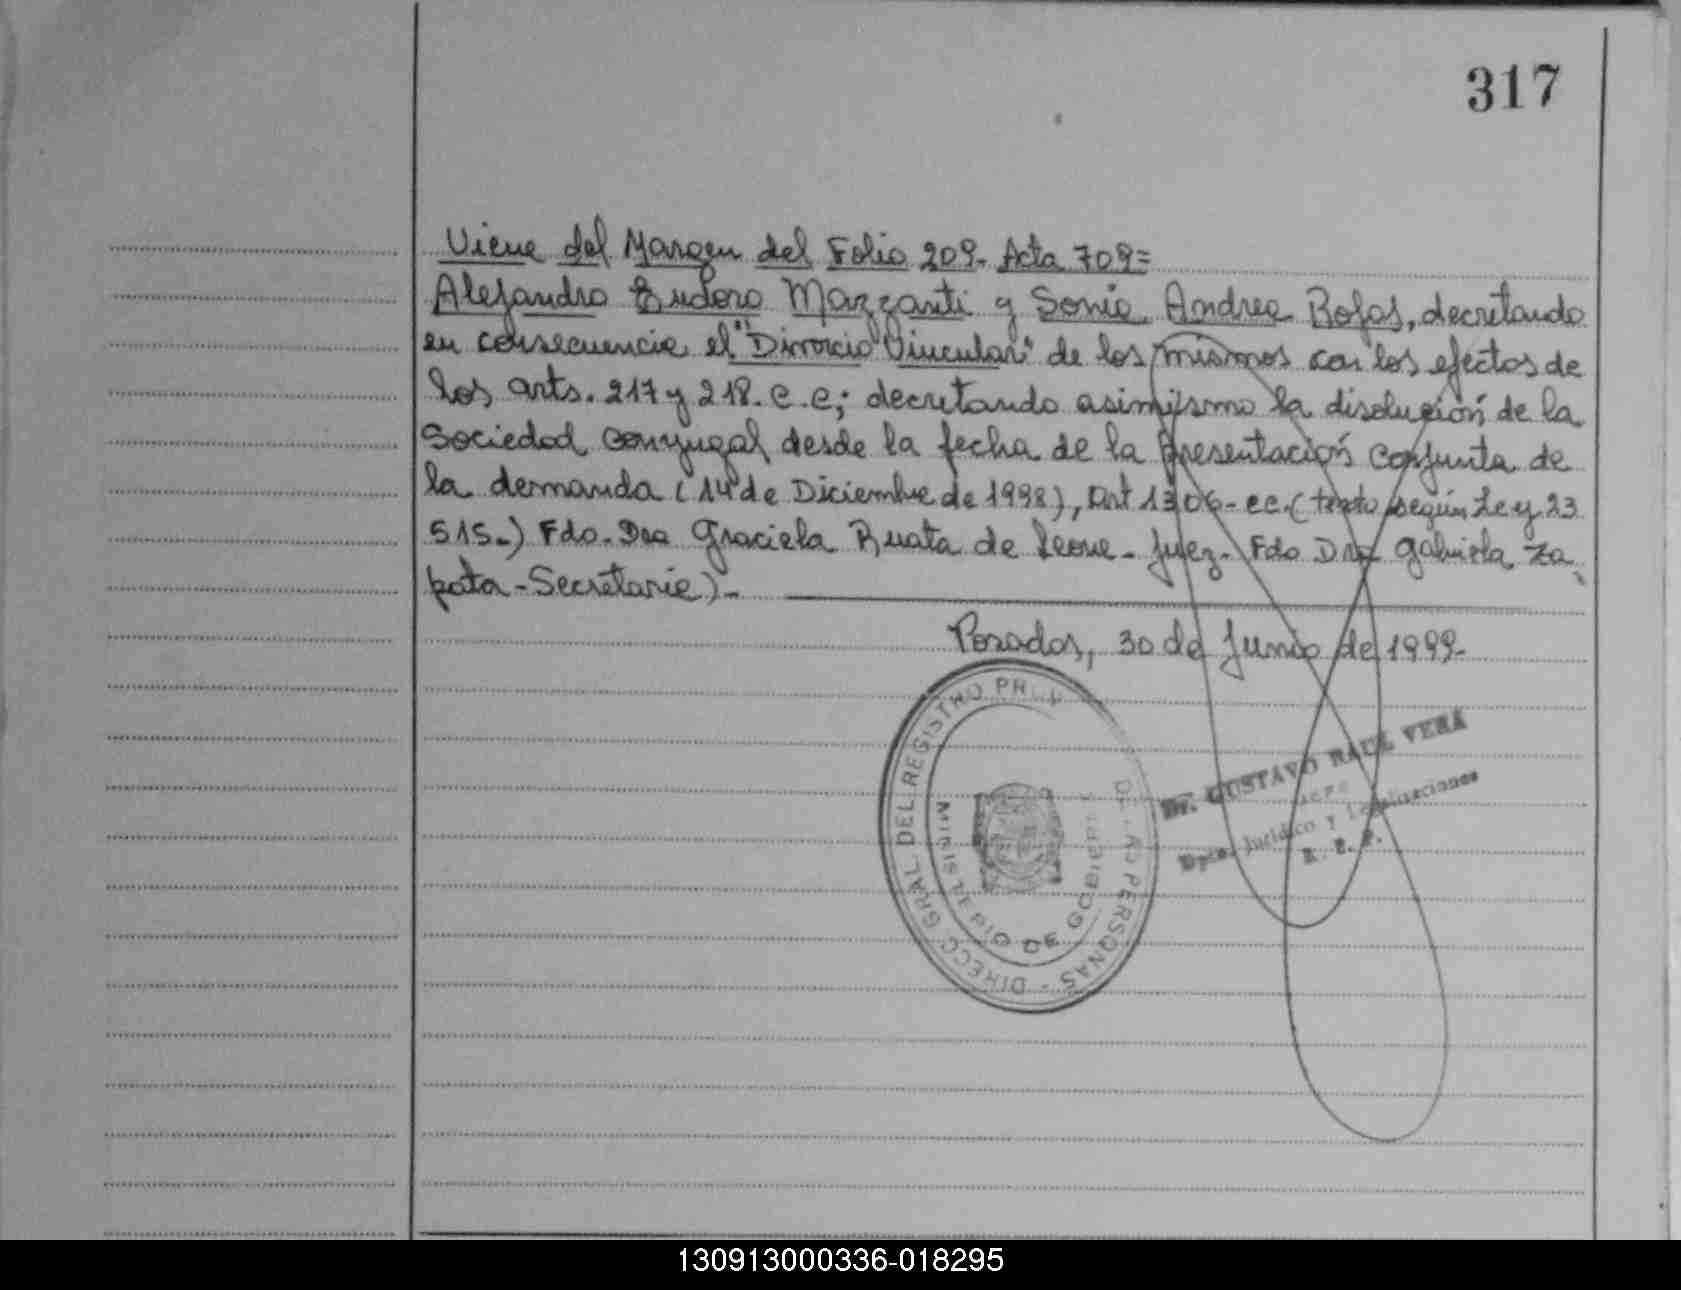 317
Viene del Margen del Folio 209- Acta 709=
Alejandro Eudoro Mazzanti y Sonia Andrea Rojas, decretando
en consecuencia el "Divorcio Vincular" de los mismos con los efectos de
los arts. 217 y 218. C.C; decretando asimismo la disolución de la
Sociedad conyugal desde la fecha de la presentación conjunta de
la demanda (14 de Diciembre de 1998), Art 1306-CC. (texto según Ley 23
515-) Fdo. Dra Graciela Ruata de Leone- Juez- Fdo Dra Gabriela Za
pata-Secretaria)-
Posadas, 30 de Junio de 1999-
DIRECC GRAL DEL REGISTRO DE LAS PERSONAS -
MINISTERIO DE GOBIERNO
Dr. GUSTAVO RAUL VERA
Dpto. Jurídico y Legalizaciones
R. P. P.
130913000336-018295